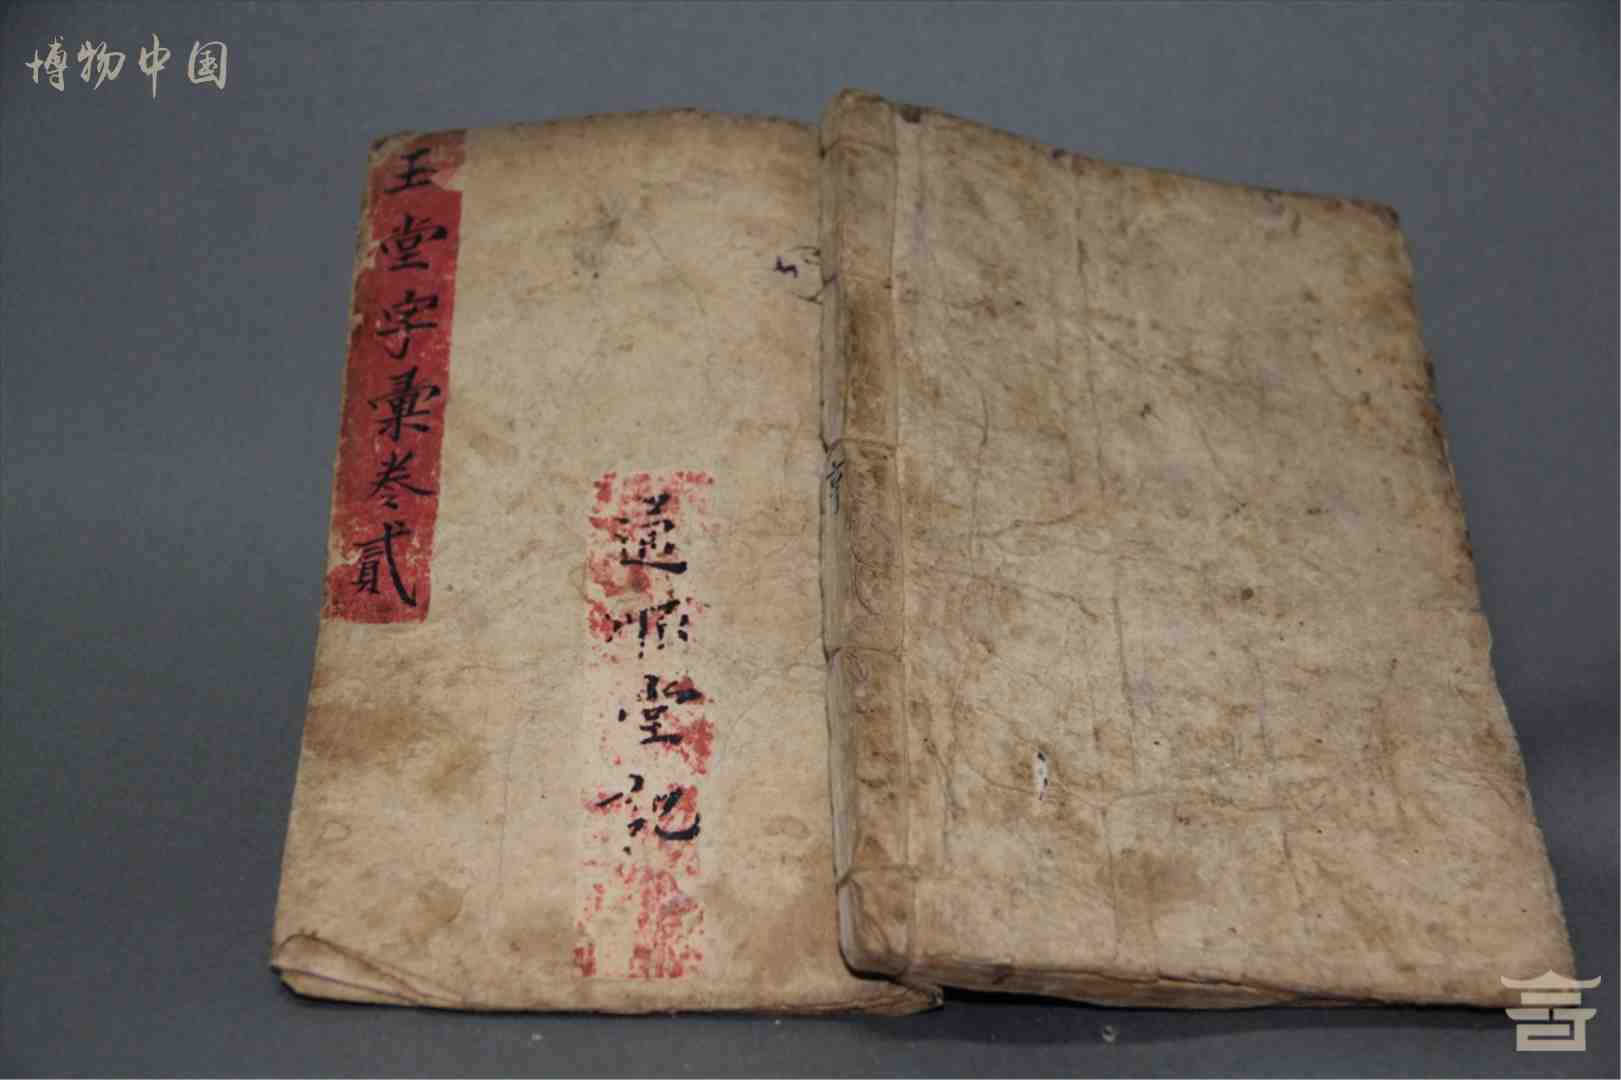 博物中国
玉堂字彙卷貳
道順堂記